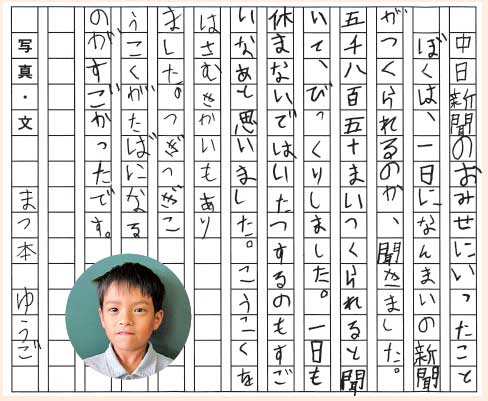 中日新聞のおみせにいったこと
ぼくは、一日になんまいの新聞
がつくられるのか、聞きました。
五千八百五十まいつくられると聞
いて、びっくりしました。一日も
休まないではいたつするのもすご
いなあと思いました。こうこくを
はさむきかいもあり
ました。つぎつぎこ
うこくがたばになる
のがすごかったです。
写真・文 まつ本 ゆうご